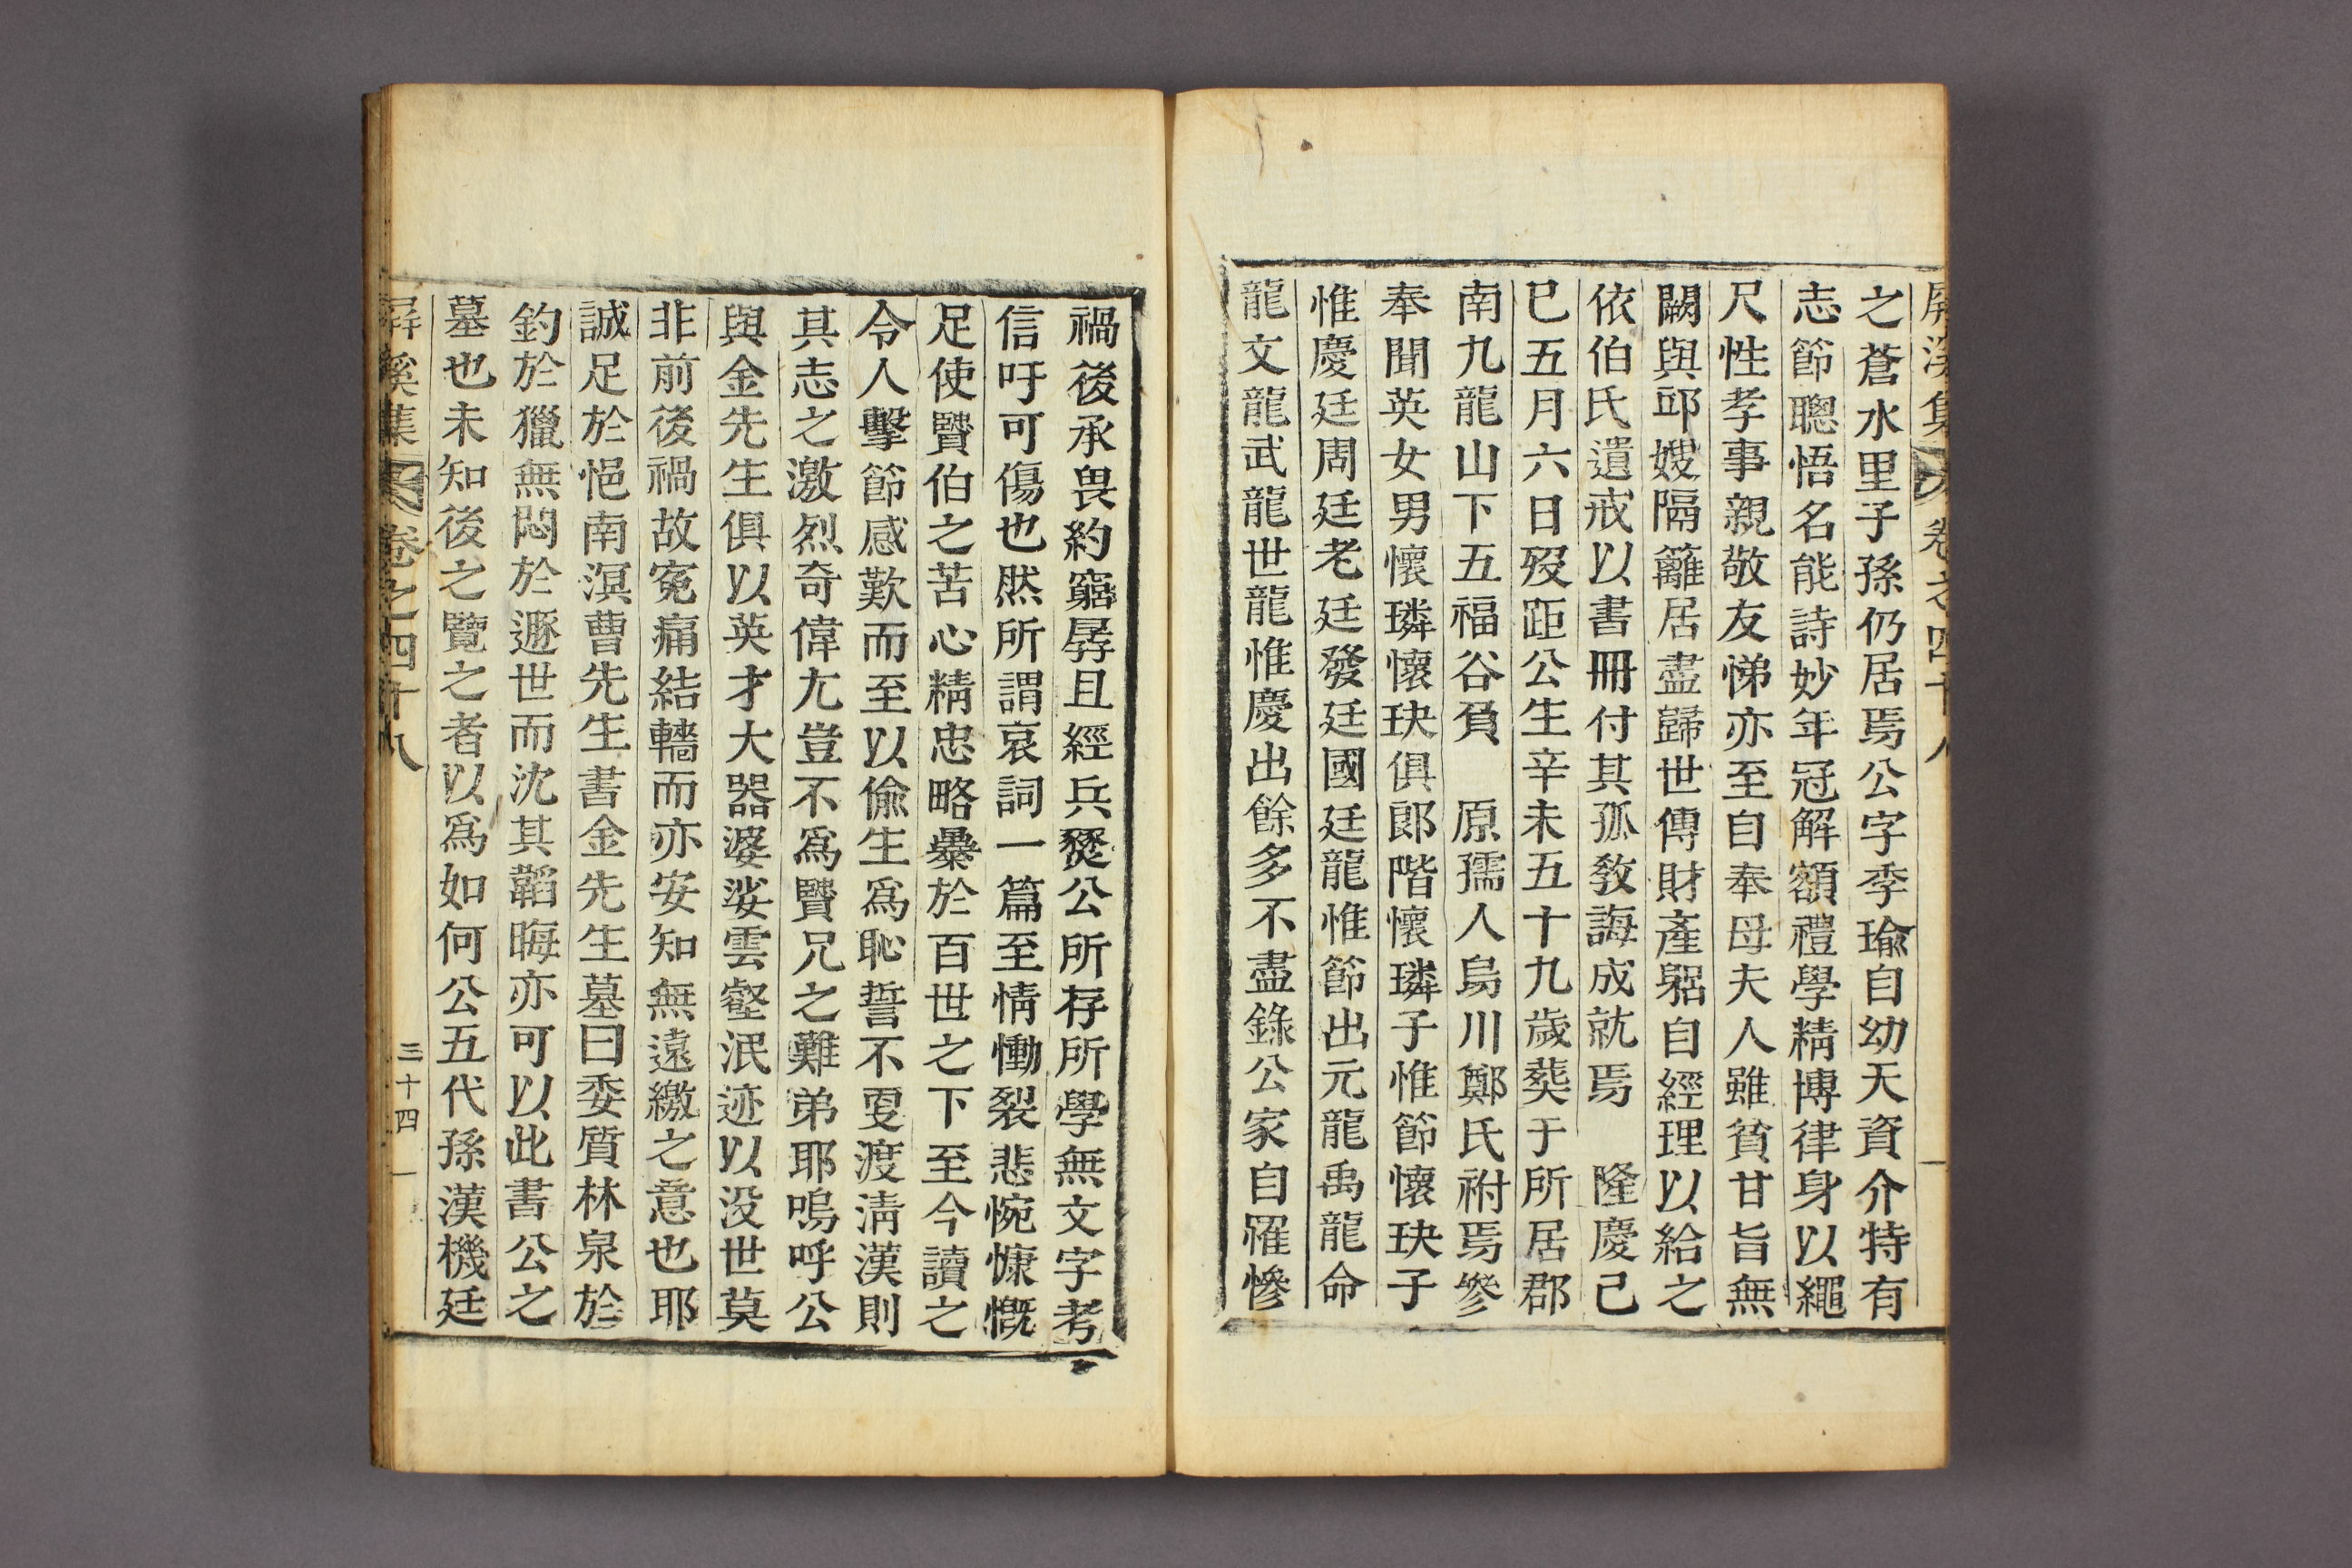 屛溪集 卷之四十八
之蒼水里子孫仍居焉公字季瑜自幼天資介特有
志節聰悟名能詩妙年冠解額禮學精博律身以繩
尺性孝事親敬友悌亦至自奉母夫人雖貧甘旨無
闕與邱嫂隔籬居盡歸世傳財產躬自經理以給之
依伯氏遺戒以書冊付其孤敎誨成就焉 隆慶己
巳五月六日歿距公生辛未五十九歲葬于所居郡
南九龍山下五福谷負 原孺人烏川鄭氏祔焉參
奉聞英女男懷璘懷玦俱郞階懷璘子惟節懷玦子
惟慶廷周廷老廷發廷國廷龍惟節出元龍禹龍命
龍文龍武龍世龍惟慶出餘多不盡錄公家自罹慘
禍後承畏約窮孱且經兵燹公所存所學無文字考
信吁可傷也然所謂哀詞一篇至情慟裂悲惋慷慨
足使贒伯之苦心精忠略㬥於百世之下至今讀之
令人擊節感歎而至以偸生爲恥誓不更渡淸漢則
其志之激烈奇偉尤豈不爲贒兄之難弟耶嗚呼公
與金先生俱以英才大器婆娑雲壑泯迹以没世莫
非前後禍故寃痛結轖而亦安知無遠繳之意也耶
誠足於悒南溟曹先生書金先生墓曰委質林泉於
釣於獵無悶於遯世而沈其韜晦亦可以此書公之
墓也未知後之覽之者以爲如何公五代孫漢機廷
屛溪集 卷之四十八 三十四